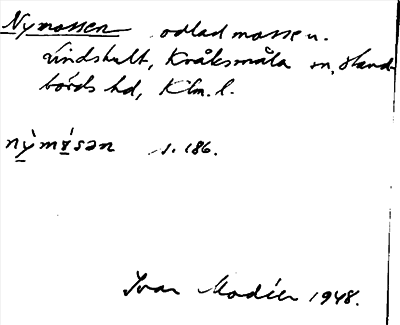 Nymossen odlad mosse u.
Lindshult, Kråksmåla sn, Hand-
börds hd, Klm. l.
nỳmɷ́sən s. 186.
Ivar Modéer 1948.